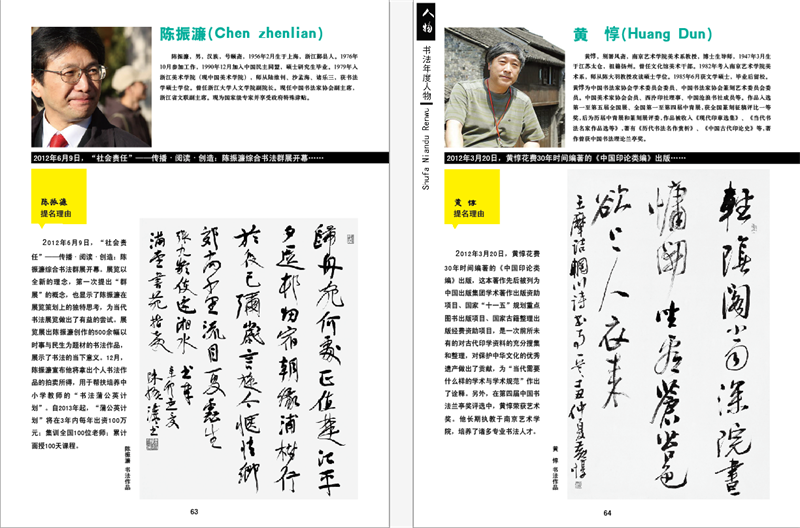 陈振濂(Chen zhenlian)
陈振濂,男,汉族,号颐斋,1956年2月生于上海,浙江鄞县人。1976年
10月参加工作,1990年12月加入中国民主同盟,硕士研究生毕业。1979年入
浙江美术学院(现中国美术学院),师从陆维钊、沙孟海、诸乐三,获书法
学硕士学位。曾任浙江大学人文学院副院长。现任中国书法家协会副主席,
浙江省文联副主席。现为国家级专家并享受政府特殊津贴。
2012年6月9日,“社会责任”——传播·阅读·创造:陈振濂综合书法群展开幕……
陈振濂
提名理由
2012年6月9日,“社会责
任”——传播·阅读·创造:陈
振濂综合书法群展开幕。展览以
全新的理念,第一次提出“群
展”的概念,也显示了陈振濂在
展览策划上的独特思考,为当代
书法展览做出了有益的尝试。展
览展出陈振濂创作的500余幅以
时事与民生为题材的书法作品,
展示了书法的当下意义。12月,
陈振濂宣布他将拿出个人书法作
品的拍卖所得,用于帮扶培养中
小学教师的“书法蒲公英计
划”。自2013年起,“蒲公英计
划”将在3年内每年出资100万
元;集训全国100位老师;累计
面授100天课程。
归舟宛何处正值楚江平
夕逗村边宿朝缘浦树行
于役已弥岁言旋今惬情乡
郊尚千里流目夏云生
张九龄使还湘水
陈振濂 书法作品
63
人物
书法年度人物
Shufa Niandu Renwu
黄 惇(Huang Dun)
黄惇,别署风斋,南京艺术学院美术系教授、博士生导师。1947年3月生
于江苏太仓,祖籍扬州。曾任文化馆美术干部。1982年考入南京艺术学院美
术系,师从陈大羽教授攻读硕士学位。1985年6月获文学硕士,毕业后留校。
黄惇为中国书法家协会学术委员会委员、中国书法家协会篆刻艺术委员会委
员、中国美术家协会会员、西泠印社理事、中国沧浪书社成员等。作品入选
第一至第五届全国展、全国第一至第四届中青展,获全国篆刻征稿评比一等
奖,后为历届中青展和篆刻展评委。作品被收入《现代印章选集》、《当代书
法名家作品选等》,著有《历代书法名作赏析》、《中国古代印论史》等,著
作曾获中国书法理论兰亭奖。
2012年3月20日,黄惇花费30年时间编著的《中国印论类编》出版……
黄 惇
提名理由
2012年3月20日,黄惇花费
30年时间编著的《中国印论类
编》出版,这本著作先后被列为
中国出版集团学术著作出版资助
项目、国家“十一五”规划重点
图书出版项目、国家古籍整理出
版经费资助项目,是一次前所未
有的对古代印学资料的充分搜集
和整理,对保护中华文化的优秀
遗产做出了贡献,为“当代需要
什么样的学术与学术规范”作出
了诠释。另外,在第四届中国书
法兰亭奖评选中,黄惇荣获艺术
奖。他长期执教于南京艺术学
院,培养了诸多专业书法人才。
轻阴阁小雨深院昼
慵开坐看苍苔色
欲上人衣来
王摩诘辋川诗
黄 惇 书法作品
64